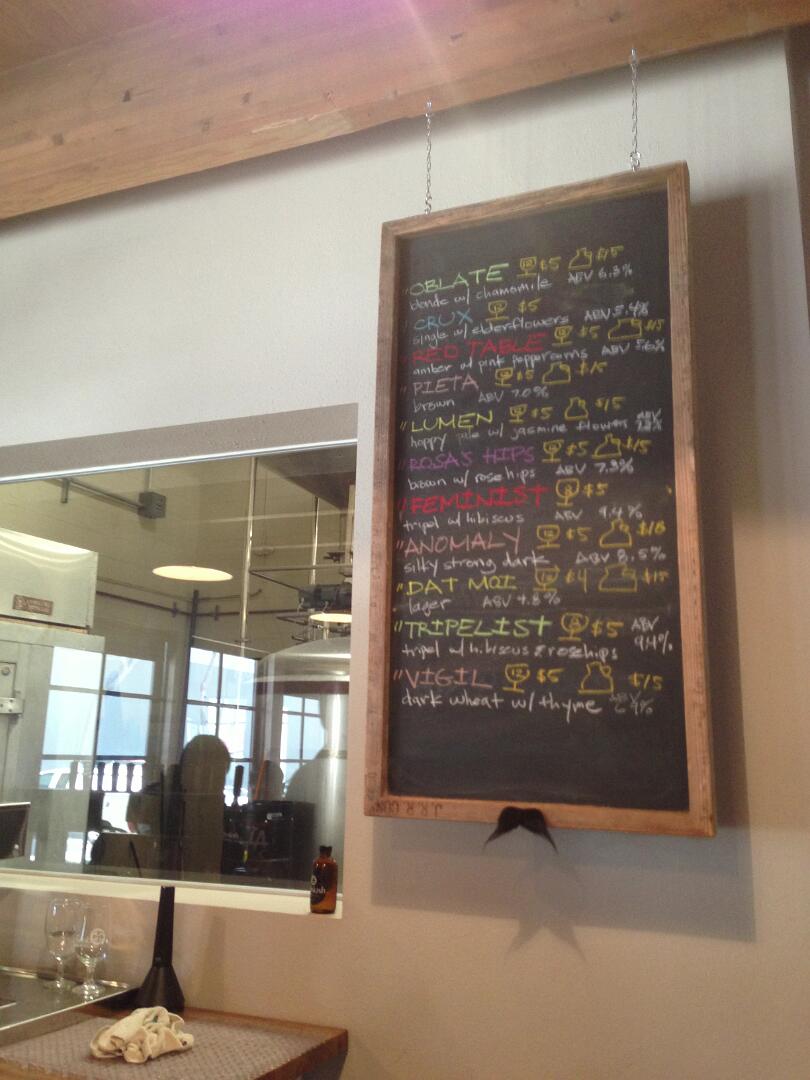 "OBLATE 12 $5 $15
blonde w/ chamomile ABV 6.3%
"CRUX 12 $5
single w/ elderflowers ABV 5.4%
"RED TABLE 12 $5 $15
amber w/ pink peppercorns ABV 5.6%
"PIETA 12 $5 $15
brown ABV 7.0%
"LUMEN 12 $5 $15
hoppy pale w/ jasmine flowers ABV
"ROSA'S HIPS 12 $5 $15
brown w/ rose hips ABV 7.3%
"FEMINIST $5
tripel w/ hibiscus ABV 9.4%
"ANOMALY 12 $5
silky strong dark ABV 8.5%
"DAT MOI 12 $4 $15
lager ABV 4.8%
"TRIPELIST 8 $5 ABV
tripel w/ hibiscus & rosehips 9.4%
"VIGIL 12 $5 $15
dark wheat w/ thyme ABV
J.R.R.